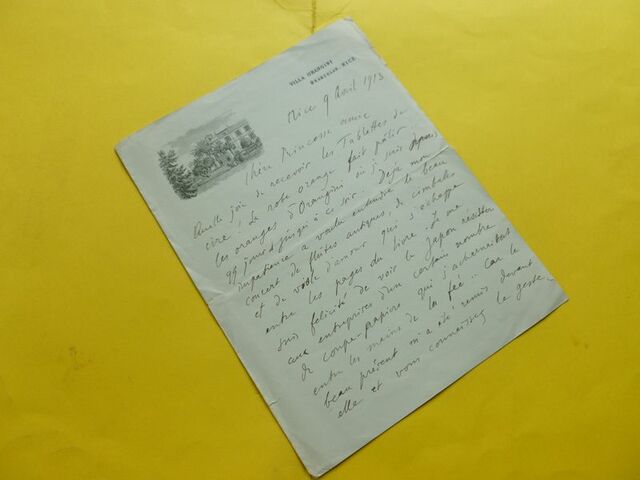 VILLA ORANGINI
NICE
Nice 9 Avril 1913
Chère Princesse amie
Quelle joie de recevoir les Tablettes de
cire ! La robe orange fait pâlir
les oranges d'Orangini où j'suis depuis
99 jours jusqu'à ce soir. Déjà mon
impatience a voulu entendre le beau
concert de flûtes antiques, de cimbales
et de viole d'amour qui s'échappe
entre les pages du livre. Je me
suis félicité de voir le Japon résister
aux entreprises d'un certain nombre
de coupe-papiers qui s'acharnaient
entre les mains de la fée.. Car le
beau présent m'a été remis devant
elle et vous connaissez le geste